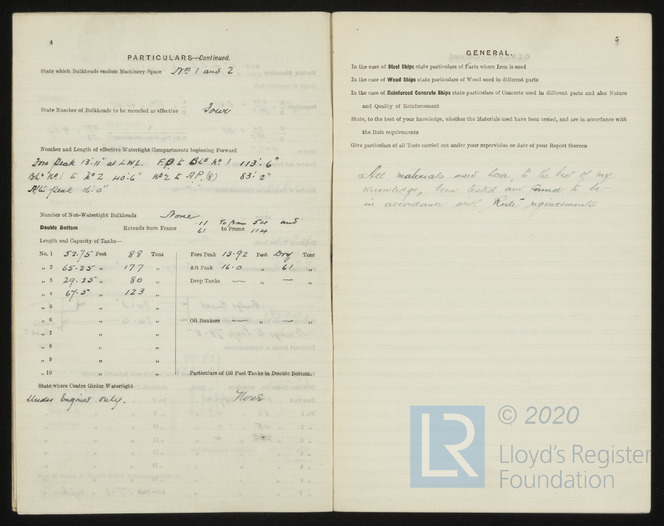 4
PARTICULARS—Continued.
State which Bulkheads enclose Machinery Space Nos 1 and 2
State Number of Bulkheads to be recorded as effective Four
Number and Length of effective Watertight Compartments beginning Forward
Fore Peak 13'-11" at LWL. F.P. to Bhd No 1 113'-6"
Bhd No 1 to No 2 40'-6" No 2 to A.P. 83'-2"
Aft Peak 16'-0"
Number of Non-Watertight Bulkheads None
Double Bottom Extends from Frame 11 61 to Frame 114 and
Length and Capacity of Tanks—
No. 1 52.75 Feet 88 Tons Fore Peak 13.92 Feet Dry Tons
„ 2 65.25 „ 177 „ Aft Peak 16.0 „ 61 „
„ 3 29.25 „ 80 „ Deep Tanks — „ — „
„ 4 67.5 „ 123 „
„ 5 „ „
„ 6 „ „ Oil Bunkers — „ — „
„ 7 „ „
„ 8 „ „
„ 9 „ „
„ 10 „ „ Particulars of Oil Fuel Tanks in Double Bottom.
State where Centre Girder Watertight
Under Engines only. None
5
GENERAL.
In the case of Steel Ships state particulars of Parts where Iron is used
In the case of Wood Ships state particulars of Wood used in different parts
In the case of Reinforced Concrete Ships state particulars of Concrete used in different parts and also Nature
and Quality of Reinforcement
State, to the best of your knowledge, whether the Materials used have been tested, and are in accordance with
the Rule requirements
Give particulars of all Tests carried out under your supervision or date of your Report thereon
All materials used have, to the best of my
knowledge, been tested and found to be
in accordance with Rule requirements
© 2020
LR
Lloyd's Register
Foundation